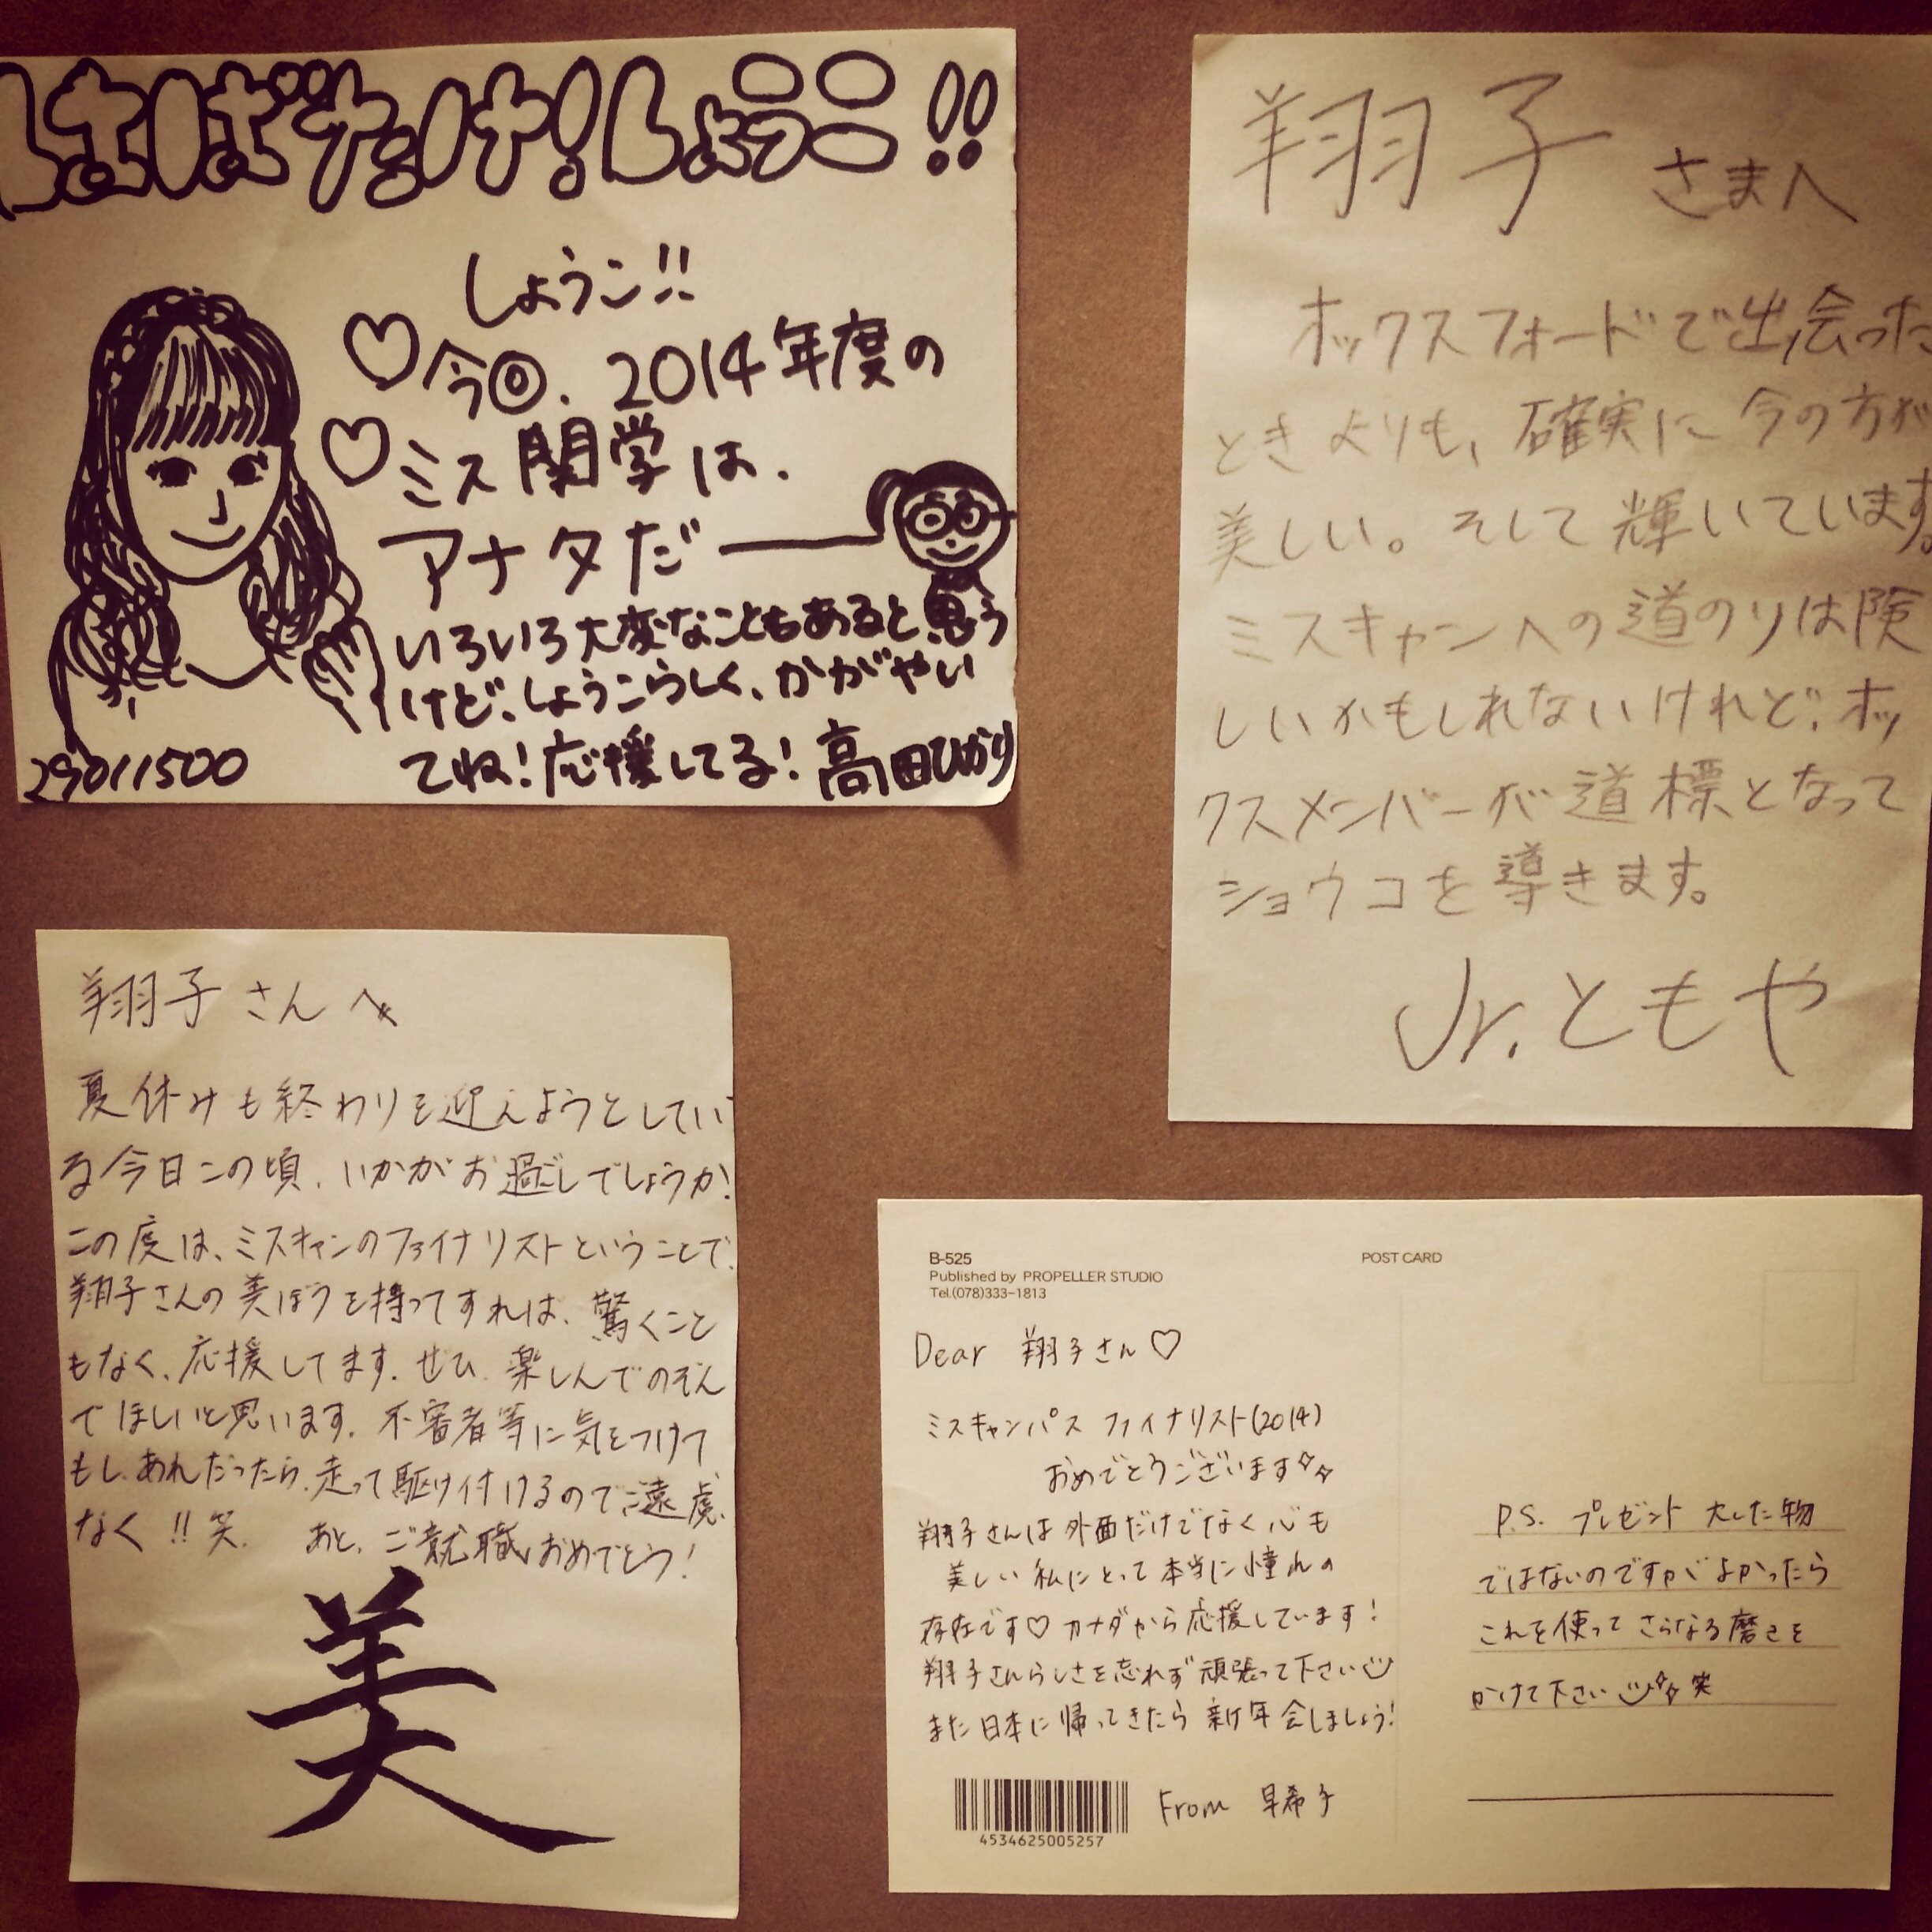 はばたけ!しょうこ!!
しょうこ!!
今回、2014年度の
ミス関学は、
アナタだー
いろいろ大変なこともあると思う
けど、しょうこらしく、かがやい
てね!応援してる!高田ひかり
29011500
翔子さまへ
オックスフォードで出会った
ときよりも、確実に今の方が
美しい。そして輝いています。
ミスキャンへの道のりは険
しいかもしれないけれど、オッ
クスメンバーが道標となって
ショウコを導きます。
Jr.ともや
翔子さんへ
夏休みも終わりを迎えようとしてい
る今日この頃、いかがお過ごしでしょうか!
この度は、ミスキャンのファイナリストということで、
翔子さんの美ぼうを持ってすれば、驚くこと
もなく、応援してます。ぜひ、楽しんでのぞん
でほしいと思います。不審者等に気をつけて
もし、あれだったら、走って駆け付けるのでご遠慮
なく!!笑 あと、ご就職おめでとう!
美
B-525
Published by PROPELLER STUDIO
Tel.(078)333-1813
POST CARD
Dear 翔子さん♡
ミスキャンパス ファイナリスト(2014)
おめでとうございます
翔子さんは外面だけでなく心も
美しい私にとって本当に憧れの
存在です♡カナダから応援しています!
翔子さんらしさを忘れず頑張って下さい
また日本に帰ってきたら新年会しましょう!
4534625005257
From 早希子
P.S. プレゼント 大した物
ではないのですが よかったら
これを使って さらなる磨きを
かけて下さい 笑